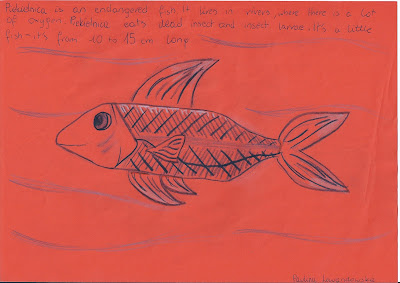 Piekielnica is an endangered fish. It lives in rivers, where there is a lot
of oxygen. Piekielnica eats dead insect and insect larvae. It's a little
fish - it's from 10 to 15 cm long
Paulina